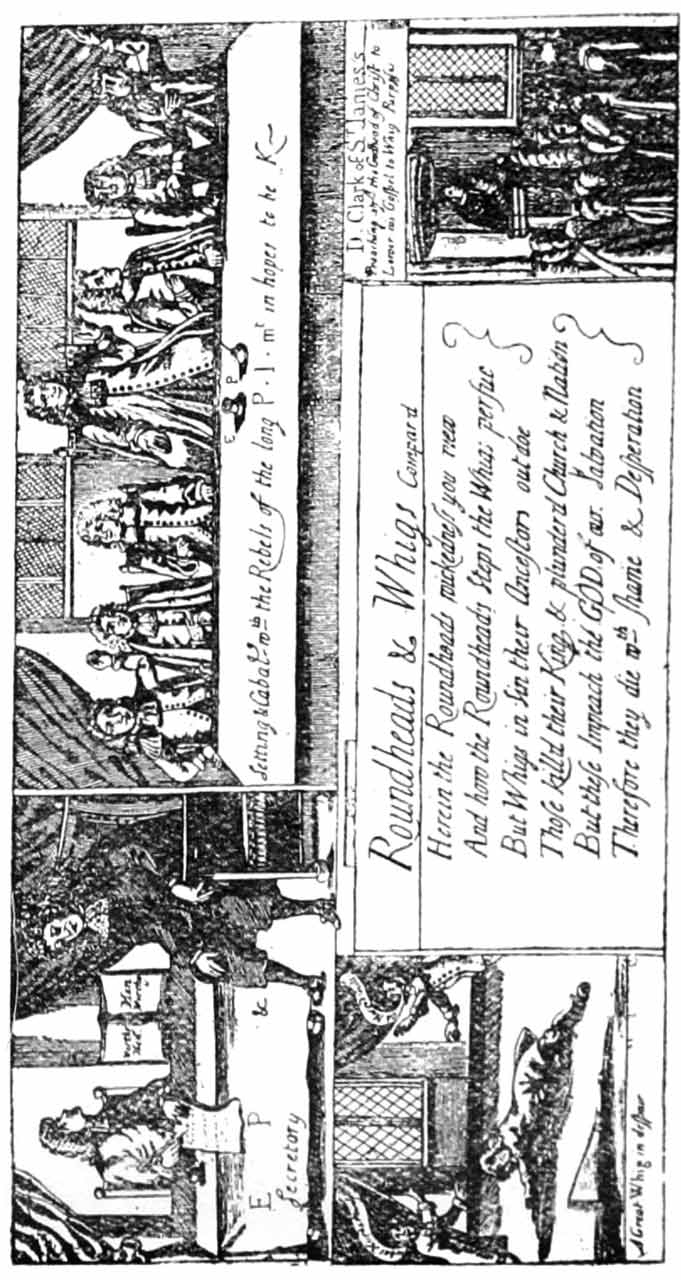 E P &
Secretary
Setting & Caball wth the Rebels of the long P·l·mt in hopes to be K
E P
A Great Whig in despair
Roundheads & Whigs Compar'd
Herein the Roundheads wickedness you view
And how the Roundheads Steps the Whigs persue
But Whigs in sin their Ancestors out doe
Those kill'd their King, & plunder'd Church & Nation
But these Impeach the GOD of our Salvation
Therefore they die wth shame & Desperation
D. Clark of St James's
Preaching away the Godhead of Christ to